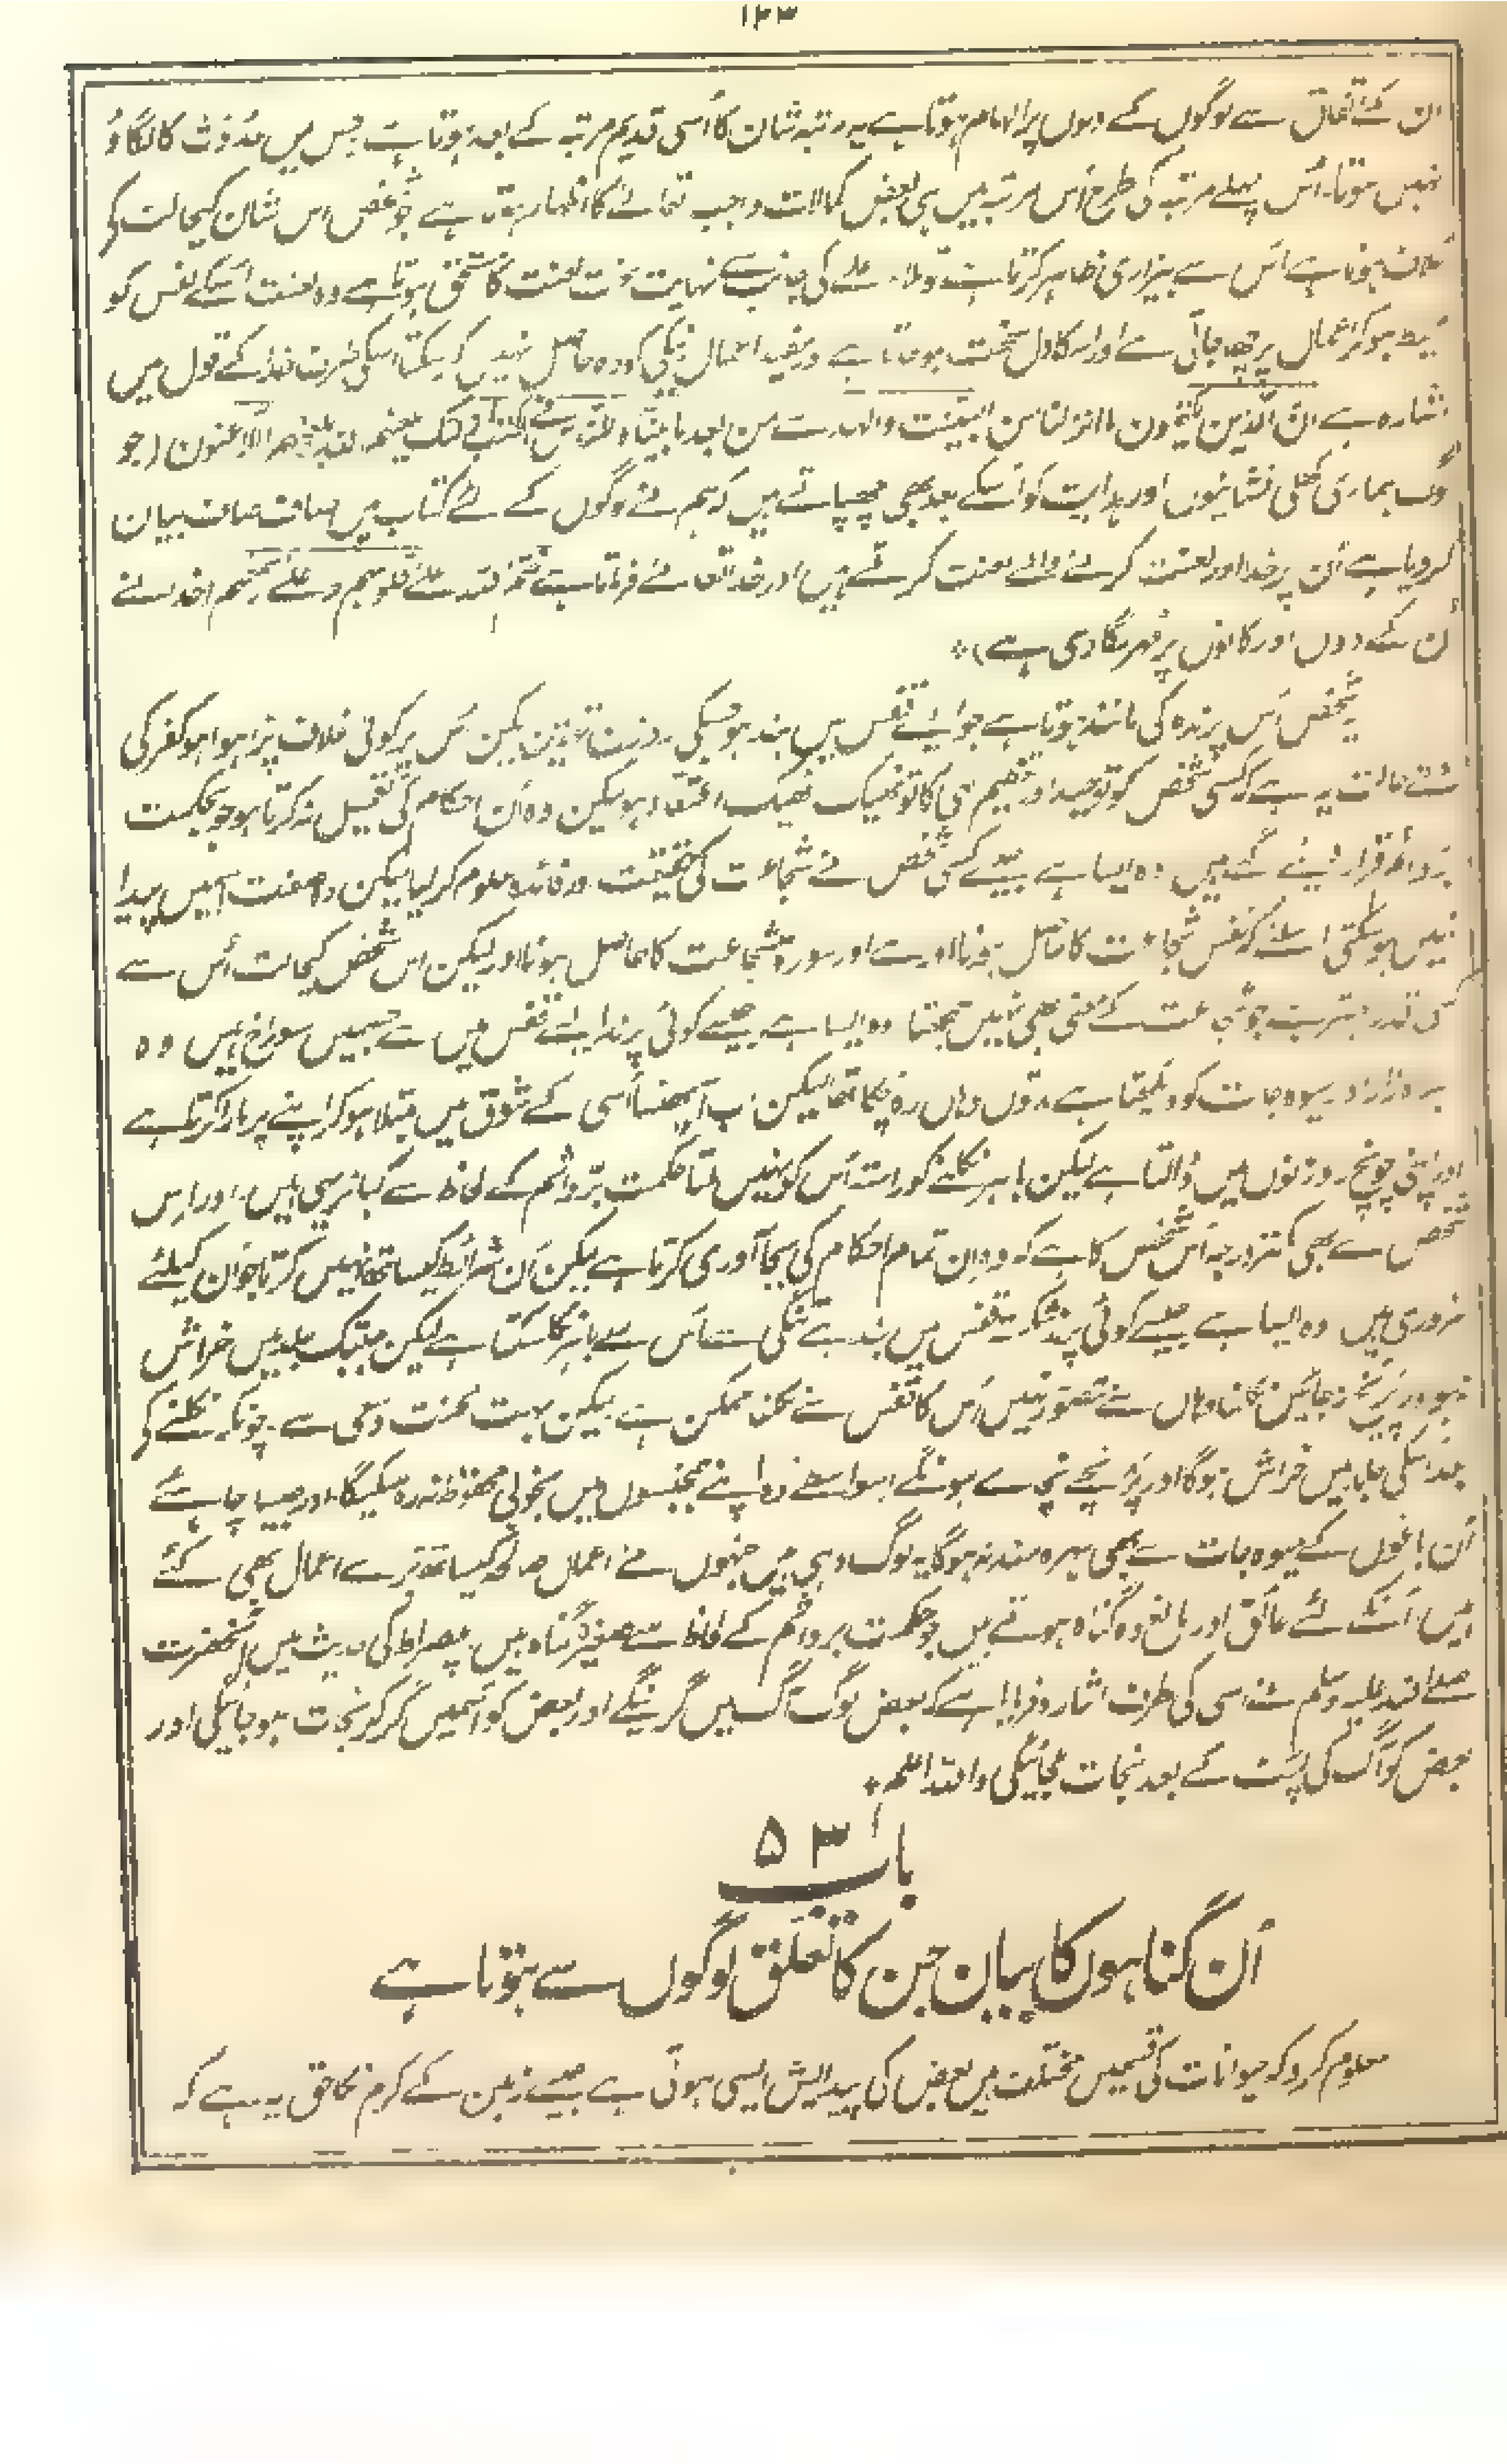 ۱۲۳
ان کے اتفاق سے لوگوں کے دلوں پر الہام ہوتا ہے یہ رتبہ شان کا اُسی قدیم مرتبہ کے بعد ہوتا ہے جس میں حدوث کا لگاؤ
نہیں ہوتا۔ اُس پہلے مرتبہ کی طرح اُس مرتبہ میں ہی بعض کمالات واجب تعالےٰ کا اظہار ہوتا ہے جو شخص اس شان کیحالت کی
خلاف ہوتا ہے اُس سے بیزاری ظاہر کرتا ہے تو ملاء اعلے کی جانب سے نہایت سخت لعنت کا مستحق ہوتا ہے وہ لعنت اُسکے نفس کو
ہو کر اعمال پر چھا جاتی ہے اور اسکا دل سخت ہو جاتا ہے اور مفید اعمال نیکی کو وہ حاصل نہیں کر سکتا اسکی طرف خدا کے قول میں
اشارہ ہے ان الذین یکتمون ما انزلنا من البینت والہدے من بعد ما بیناہ للناس فی الکتب اولئک یلعنہم اللہ ویلعنہم اللاعنون (جو
لوگ ہماری کھلی نشانیوں اور ہدایت کو اُسکے بعد بھی چھپاتے ہیں کہ ہم نے لوگوں کے لئے کتاب میں صاف صاف بیان
کر دیا ہے اُن پر خدا اور لعنت کرنے والے لعنت کرتے ہیں) اور خدا تعالے نے فرمایا ہے ختم اللہ علے قلوبہم و علے سمعہم (خدا نے
اُن کے دلوں اور کانوں پر مُہر لگا دی ہے)٭
یہ شخص اُس پرندہ کی مانند ہوتا ہے جو ایسے قفس میں بند ہو جسکی روزنے تو ہیں لیکن اُس پر کوئی غلاف پڑا ہوا ہو کفر کی
حالت یہ ہے کہ کسی شخص کو توحید اور تعظیم ہی کا تو ٹھیک ٹھیک اعتقاد ہو لیکن وہ اُن احکام کی تعمیل نہ کرتا ہو جو حکمت
بر و اثم قرار دیئے گئے ہیں وہ ایسا ہے جیسے کسی شخص نے شجاعت کی حقیقت اور فائدہ معلوم کر لیا لیکن وہ صفت اسمیں پیدا
نہیں ہو سکتی اسلئے کہ نفس شجاعت کا حاصل ہونا اور ہے اور صورت شجاعت کا حاصل ہونا اور لیکن اس شخص کیحالت اُس سے
کسی قدر بہتر ہے جو شجاعت کے معنی بھی نہیں سمجھتا وہ ایسا ہے جیسے کوئی پرندا ایسے قفس میں ہے جسمیں سوراخ ہیں وہ
سبزہ زار اور میوہ جات کو دیکھتا ہے مدتوں وہاں رہ چکا تھا لیکن اب آ پھنسا اُسی کے شوق میں مبتلا ہو کر اپنے پر مارا کرتا ہے
اور اپنی چونچ روزنوں میں ڈالتا ہے لیکن باہر نکلنے کو راستہ اُس کو نہیں ملتا حکمت بر و اثم کے لحاظ سے کبائر یہی ہیں۔ اور اس
شخص سے بھی کمتر درجہ اُس شخص کا ہے کہ وہ ان تمام احکام کی بجا آوری کرتا ہے لیکن اُن شرائط کیساتھ نہیں کرتا جو اُن کیلئے
ضروری ہیں وہ ایسا ہے جیسے کوئی پرند شکستہ قفس میں بند ہے تنگی سے اُس سے باہر نکل سکتا ہے لیکن جبتک جلد میں خراش
نہو اور پر نچ نہ جائیں نکلنا وہاں سے متصور نہیں اُس کا قفس سے نکلنا ممکن ہے لیکن بہت محنت و سعی سے۔ چونکہ نکلنے کی
بعد اسکی جلد میں خراش ہوگا اور پر نچے نچے سے ہونگے اسواسطے وہ اپنے ہمجنسوں میں بخوبی محظوظ نہ رہ سکیگا اور جیسا چاہئے
اُن باغوں کے میوہ جات سے بھی بہرہ مند نہ ہوگا یہ لوگ وہی ہیں جنہوں نے اعمال صالحہ کیساتھ برے اعمال بھی کئے
ہیں اُنکے لئے عائق اور مانع وہ گناہ ہوتے ہیں جو حکمت بر و اثم کے لحاظ سے صغیرہ گناہ ہیں پلصراط کی حدیث میں آنحضرت
صلے اللہ علیہ وسلم نے اسی کی طرف اشارہ فرمایا ہے کہ بعض لوگ آگ میں گرینگے اور بعض کو اسمیں گر کر نجات ہو جائیگی اور
بعض کو آگ کی لپٹ کے بعد نجات ملجائیگی واللہ اعلم٭
باب ۵۳
اُن گناہوں کا بیان جن کا تعلق لوگوں سے ہوتا ہے
معلوم کرو کہ حیوانات کی قسمیں مختلف ہیں بعض کی پیدائش ایسی ہوتی ہے جیسے زمین کے کرم انکا حق یہ ہے کہ